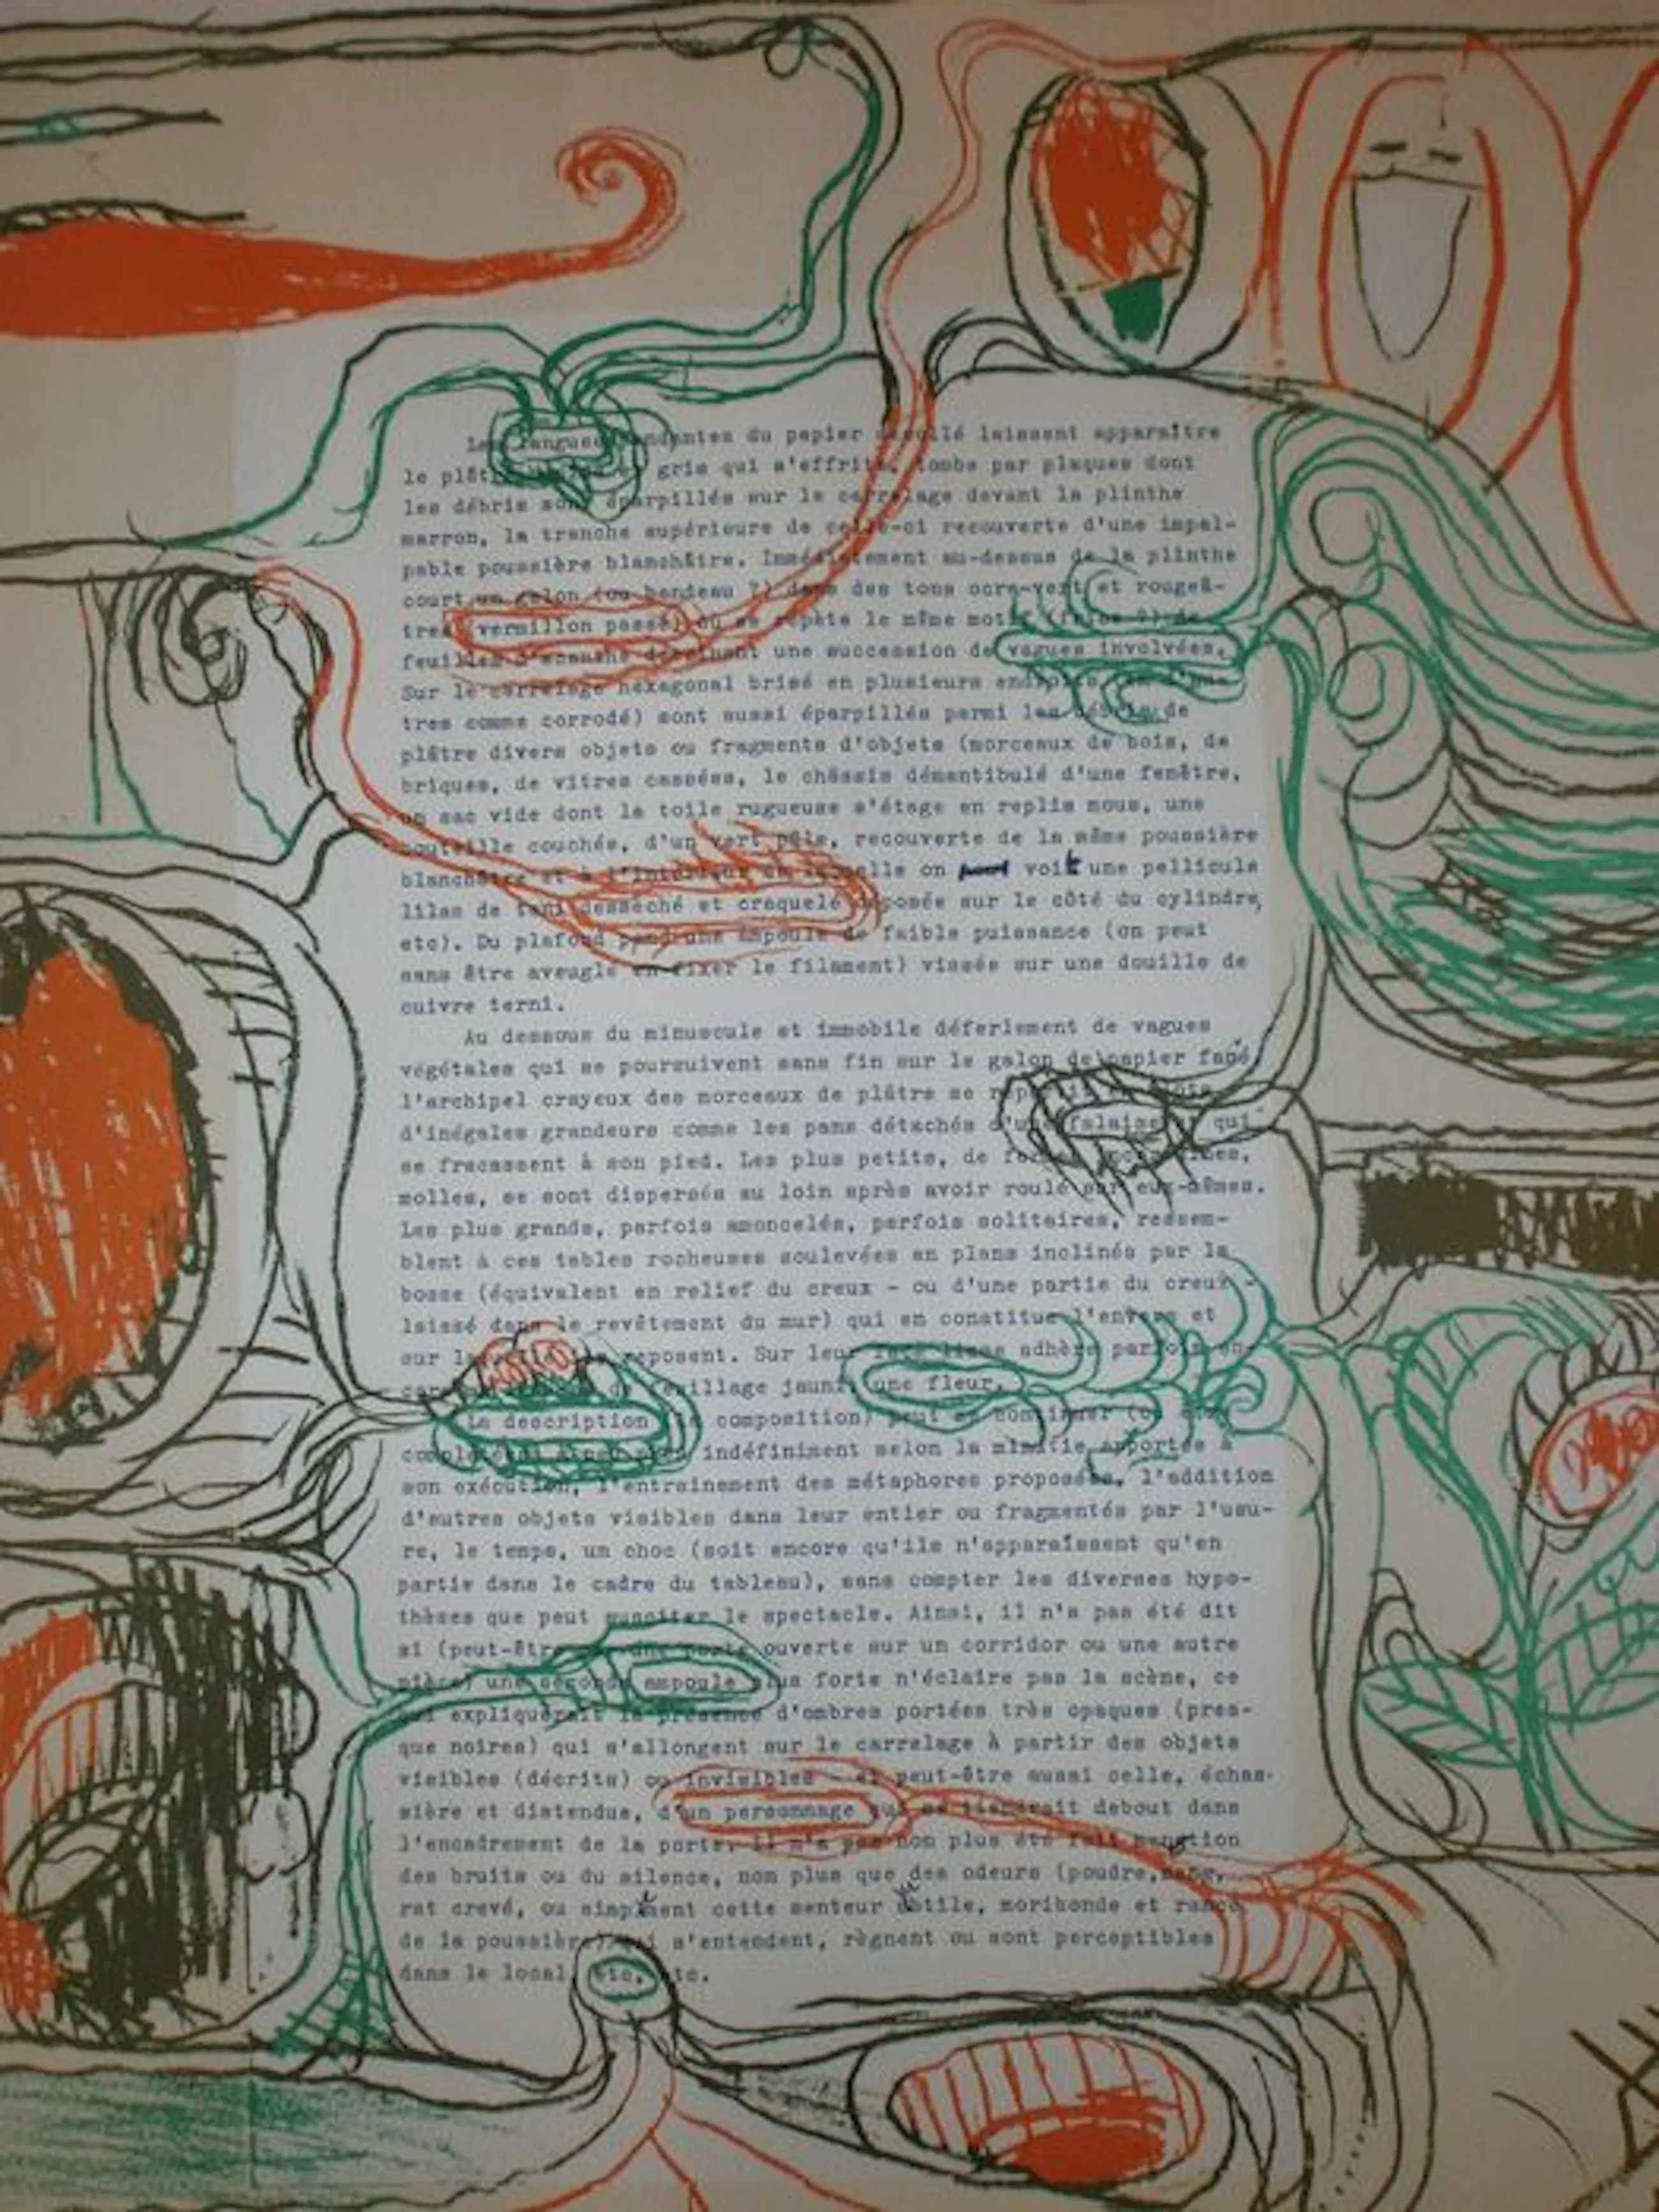 Les langues pendantes du papier décollé laissent apparaître
le plâtre gris qui s'effrite, tombe par plaques dont
les débris sont éparpillés sur le carrelage devant la plinthe
marron, la tranche supérieure de celle-ci recouverte d'une impal-
pable poussière blanchâtre. Immédiatement au-dessus de la plinthe
court un galon (ou bandeau ?) dans des tons ocre-vert et rougeâ-
tres (vermillon passé) où se répète le même motif (frise ?) de
feuilles d'acanthe dessinant une succession de vagues involvées.
Sur le carrelage hexagonal brisé en plusieurs endroits (en d'au-
tres comme corrodé) sont aussi éparpillés parmi les débris de
plâtre divers objets ou fragments d'objets (morceaux de bois, de
briques, de vitres cassées, le châssis démantibulé d'une fenêtre,
un sac vide dont la toile rugueuse s'étage en replis mous, une
bouteille couchée, d'un vert pâle, recouverte de la même poussière
blanchâtre et à l'intérieur de laquelle on voit une pellicule
lilas de tani desséché et craquelé déposée sur le côté du cylindre,
etc). Du plafond pend une ampoule de faible puissance (on peut
sans être aveuglé en fixer le filament) vissée sur une douille de
cuivre terni.
Au dessous du minuscule et immobile déferlement de vagues
végétales qui se poursuivent sans fin sur le galon de papier fané,
l'archipel crayeux des morceaux de plâtre se répartit en îlots
d'inégales grandeurs comme les pans détachés d'une falaise et qui
se fracassent à son pied. Les plus petits, de formes
molles, se sont dispersés au loin après avoir roulé sur eux-mêmes.
Les plus grands, parfois amoncelés, parfois solitaires, ressem-
blent à ces tables rocheuses soulevées en plans inclinés par la
bosse (équivalent en relief du creux - ou d'une partie du creux -
laissé dans le revêtement du mur) qui en constitue l'envers et
sur laquelle ils reposent. Sur leur face lisse adhère parfois en-
core de feuillage jauni, une fleur.
La description (la composition) peut se continuer (ou être
complétée) à peu près indéfiniment selon la minutie apportée à
son exécution, l'entraînement des métaphores proposées, l'addition
d'autres objets visibles dans leur entier ou fragmentés par l'usu-
re, le temps, un choc (soit encore qu'ils n'apparaissent qu'en
partie dans le cadre du tableau), sans compter les diverses hypo-
thèses que peut susciter le spectacle. Ainsi, il n'a pas été dit
si (peut-être par une porte ouverte sur un corridor ou une autre
pièce) une seconde ampoule plus forte n'éclaire pas la scène, ce
qui expliquerait la présence d'ombres portées très opaques (pres-
que noires) qui s'allongent sur le carrelage à partir des objets
visibles (décrits) ou invisibles - et peut-être aussi celle, échas-
sière et distendue, d'un personnage qui se tiendrait debout dans
l'encadrement de la porte. Il n'a pas non plus été fait mention
des bruits ou du silence, non plus que des odeurs (poudre, sang,
rat crevé, ou simplement cette senteur subtile, moribonde et rance
de la poussière) qui s'entendent, règnent ou sont perceptibles
dans le local, etc, etc.